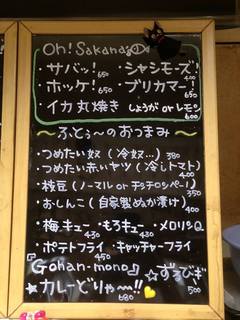 Oh! Sakanaの
・サバッ! 650 ・シシャモーズ! 400
・ホッケ! 650 ・ブリカマー! 600
・イカ丸焼き しょうが or レモン 600
〜ふとぅ〜のおつまみ〜
・つめたい奴(冷奴…) 380
・つめたい赤いヤツ(冷しトマト) 400
・枝豆(ノーマル or チョチョンペペ)
・おしんこ(自家製ぬか漬け) 400
・梅キュー 430 ・もろキュー 430 ・メロリンQ 450
・ポテトフライ 450 ・キャッチャーフライ 450
Gohan-mono
★カレーどりゃ〜!! 680
☆ずろびぎ 500